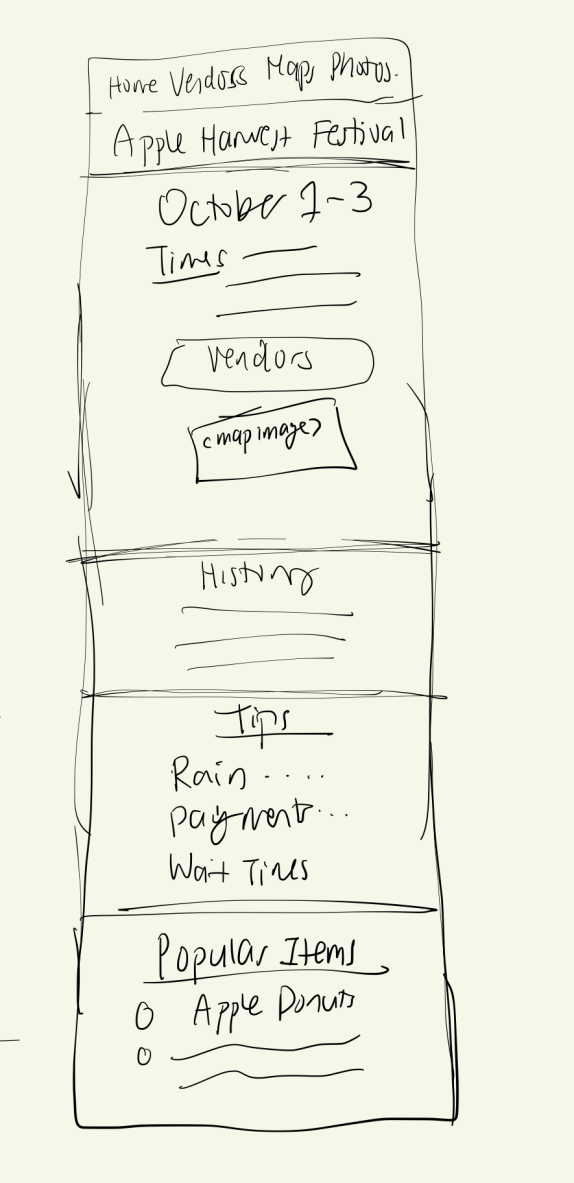 Home Vendors Maps Photos.
Apple Harvest Festival
October 1-3
Times
Vendors
<map image>
History
Tips
Rain ....
Payment...
Wait Times
Popular Items
Apple Donuts